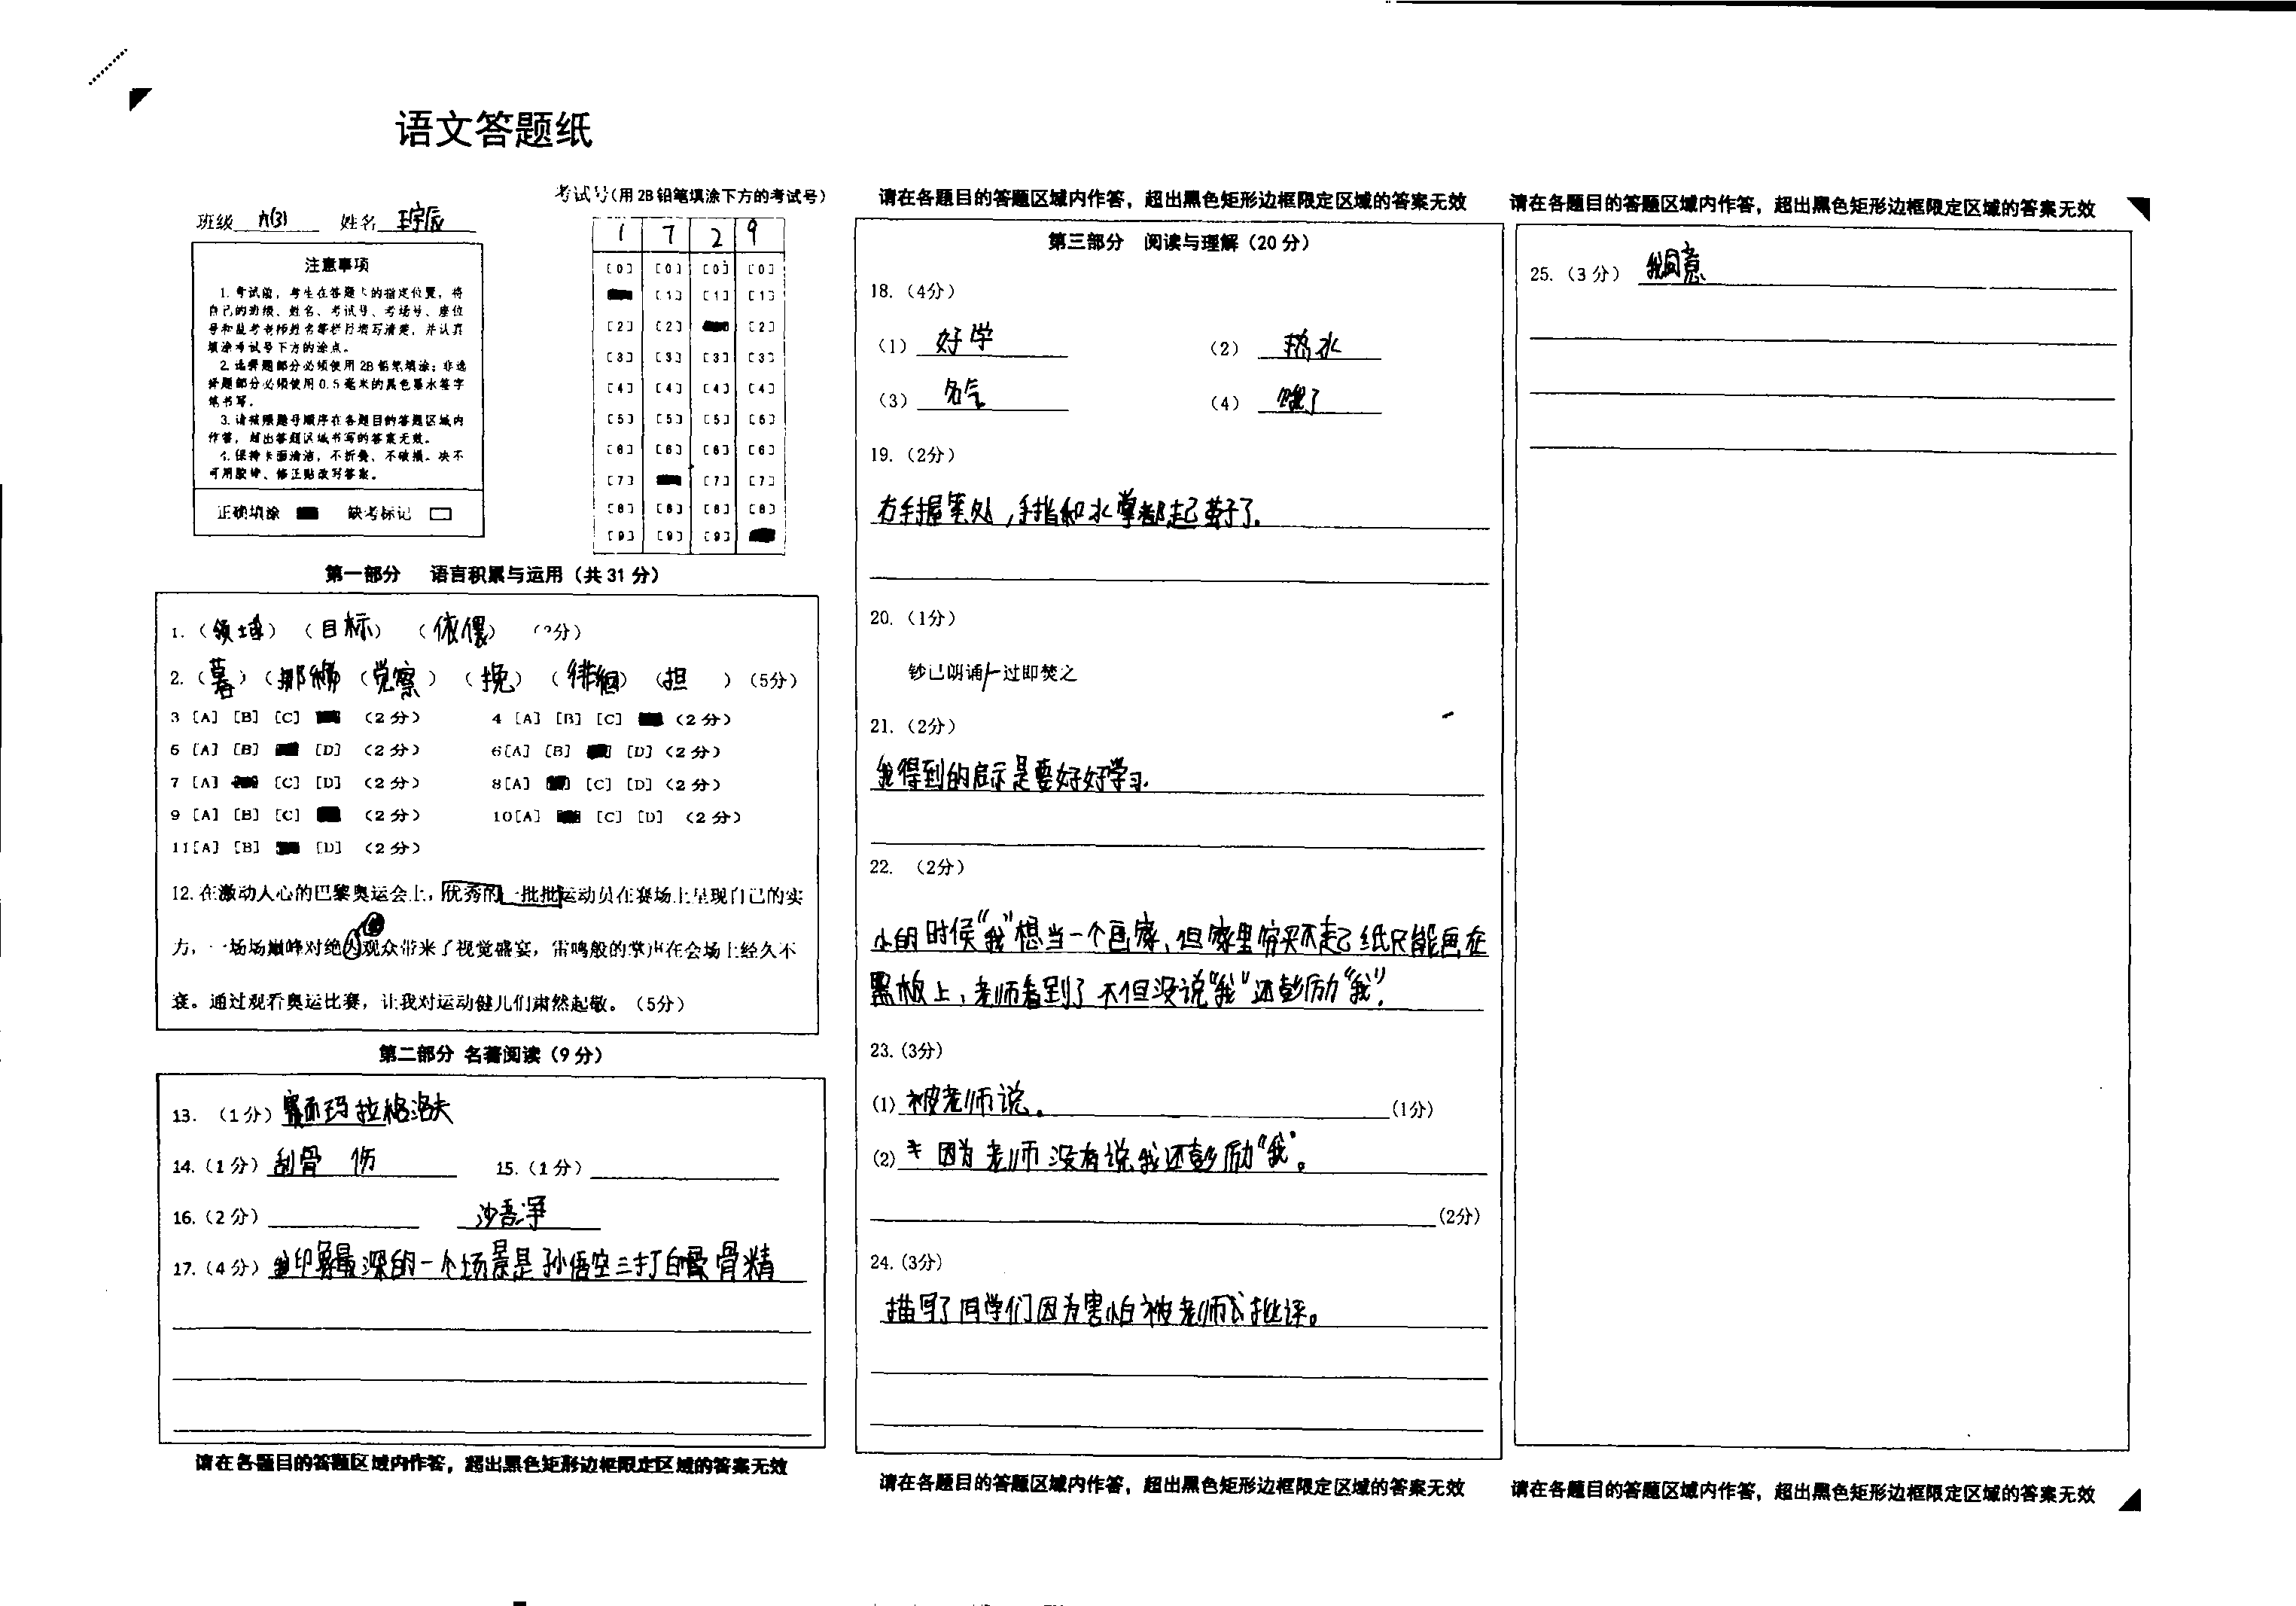 语文答题纸
考试号(用 2B 铅笔填涂下方的考试号)
班级 六(3) 姓名 王宇辰
1 7 2 9
注意事项
1. 考试前，考生在答题卡的指定位置，将
自己的班级、姓名、考试号、考场号、座位
号和监考老师姓名等栏目填写清楚，并认真
填涂考试号下方的涂点。
2. 选择题部分必须使用 2B 铅笔填涂；非选
择题部分必须使用 0.5 毫米的黑色墨水签字
笔书写。
3. 请按照题号顺序在各题目的答题区域内
作答，超出答题区域书写的答案无效。
4. 保持卡面清洁，不折叠、不破损。决不
可用胶带、修正贴改写答案。
正确填涂 缺考标记
[0] [0] [0] [0]
[1] [1] [1]
[2] [2] [2]
[3] [3] [3] [3]
[4] [4] [4] [4]
[5] [5] [5] [5]
[6] [6] [6] [6]
[7] [7] [7]
[8] [8] [8] [8]
[9] [9] [9]
第一部分 语言积累与运用（共 31 分）
1.（领域）（目标）（依偎）（3分）
2.（暮）（挪移）（觉察）（挽）（徘徊）（担）（5分）
3 [A] [B] [C] （2 分） 4 [A] [B] [C] （2 分）
5 [A] [B] [D] （2 分） 6[A] [B] [D]（2 分）
7 [A] [C] [D] （2 分） 8[A] [C] [D]（2 分）
9 [A] [B] [C] （2 分） 10[A] [C] [D] （2 分）
11[A] [B] [D] （2 分）
12. 在激动人心的巴黎奥运会上，优秀的一批批运动员在赛场上呈现自己的实
力，一场场巅峰对绝为观众带来了视觉盛宴，雷鸣般的掌声在会场上经久不
衰。通过观看奥运比赛，让我对运动健儿们肃然起敬。（5分）
第二部分 名著阅读（9 分）
13.（1 分）赛而玛拉格洛夫
14.（1 分）刮骨 伤 15.（1 分）
16.（2 分） 沙吾净
17.（4 分）我印象最深的一个场景是孙悟空三打白骨精
请在各题目的答题区域内作答，超出黑色矩形边框限定区域的答案无效
请在各题目的答题区域内作答，超出黑色矩形边框限定区域的答案无效
第三部分 阅读与理解（20 分）
18.（4分）
（1）好学 （2）热水
（3）名气 （4）饿了
19.（2分）
右手握笔处，手指和水掌都起茧子了.
20.（1分）
钞已朗诵/一过即焚之
21.（2分）
我得到的启示是要好好学习.
22. （2分）
小的时候“我”想当一个画家，但家里穷买不起纸只能画在
黑板上，老师看到了不但没说“我”还彭励“我”.
23.（3分）
(1) 被老师说。(1分)
(2) 因为老师没有说我还彭励“我”。
(2分)
24.（3分）
描写了同学们因为害怕被老师批评。
请在各题目的答题区域内作答，超出黑色矩形边框限定区域的答案无效
请在各题目的答题区域内作答，超出黑色矩形边框限定区域的答案无效
25.（3 分） 我同意
请在各题目的答题区域内作答，超出黑色矩形边框限定区域的答案无效